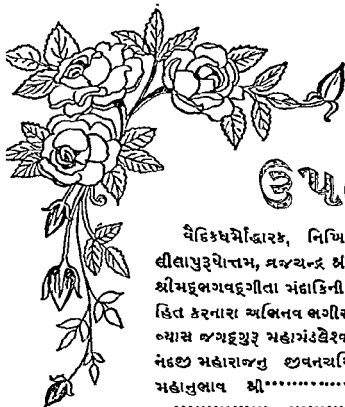 ઉપ
વૈદિકધર્મોદ્ધારક, નિખિ
લીલાપુરૂષોત્તમ, વ્રજચન્દ્ર શ્રી
શ્રીમદ્ભગવદ્ગીતા મંદાકિની
હિત કરનારા અભિનવ ભગીર
વ્યાસ જગદ્ગુરૂ મહામંડલેશ્વ
નંદજી મહારાજનુ જીવનચરિ
મહાનુભાવ શ્રી